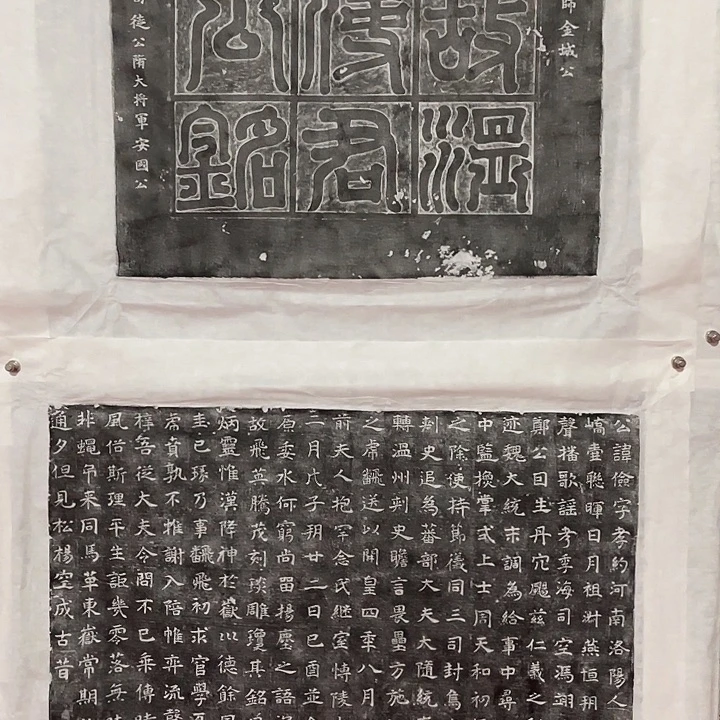 師金城公
故溫
使君
銘
徒公隋大將軍安國公
公諱儉字孝約河南洛陽人
嶠臺聮暉日月祖燕恒朔
聲播歌謠考季海司空馮翊
鄭公曰生丹穴飈茲仁義之
迹魏大統末調為給事中尋
中監揆掌式上士周天和初
之除使持節儀同三司封
刾史追為蕃部大夫大隨統
轉溫州刾史瞻言畏壘方施
之虐飜送以開皇四年八月
前夫人抱罕念氏継室愽陵
二月戊子朔廿二日己酉並
原委水何窮尚留揚塵之語
故飛英騰茂刻琰雕瓊其銘
炳靈惟漢降神於嶽以德餘
圭已琢乃事飜飛初求官學
席賁孰不推謝入陪帷弈流聲
梓吾從大夫令問不已乘傳
風俗斯理平生詎幾零落無
非蠅弔来同馬革東嶽常期
夕但見松楊空成古昔